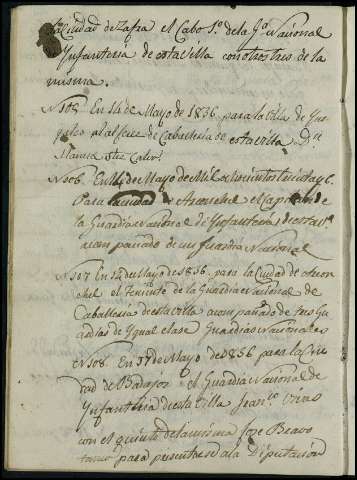 Ciudad de Zafra el Cabo 1º de la Gª Nacional
Ynfanteria de esta Villa con otros tres de la
misma.
Nº 105. En 14 de Mayo de 1836 para la Villa de
al de Caballeria de esta villa Dn
Nº 106. En 14 de Mayo de Mil ochocientos treinta y 6.
Para de el Capitan de
la Guardia Nacional de Ynfanteria de esta Vª
acompañado de un Guardia Nacional
Nº 107 En 14 de Mayo de 1836. para la Ciudad de
el Teniente de la Guardia Nacional de
Caballeria de esta villa acompañado de tres Gu
ardias de Ygual clase Guardias Nacionales
Nº 108. En 17 de Mayo de 1836 para la Ciu
dad de Badajoz el Guardia Nacional de
Ynfanteria de esta Villa Franco Vivas
con el quinto de la misma Jose Bravo
para presentarse a la Diputación